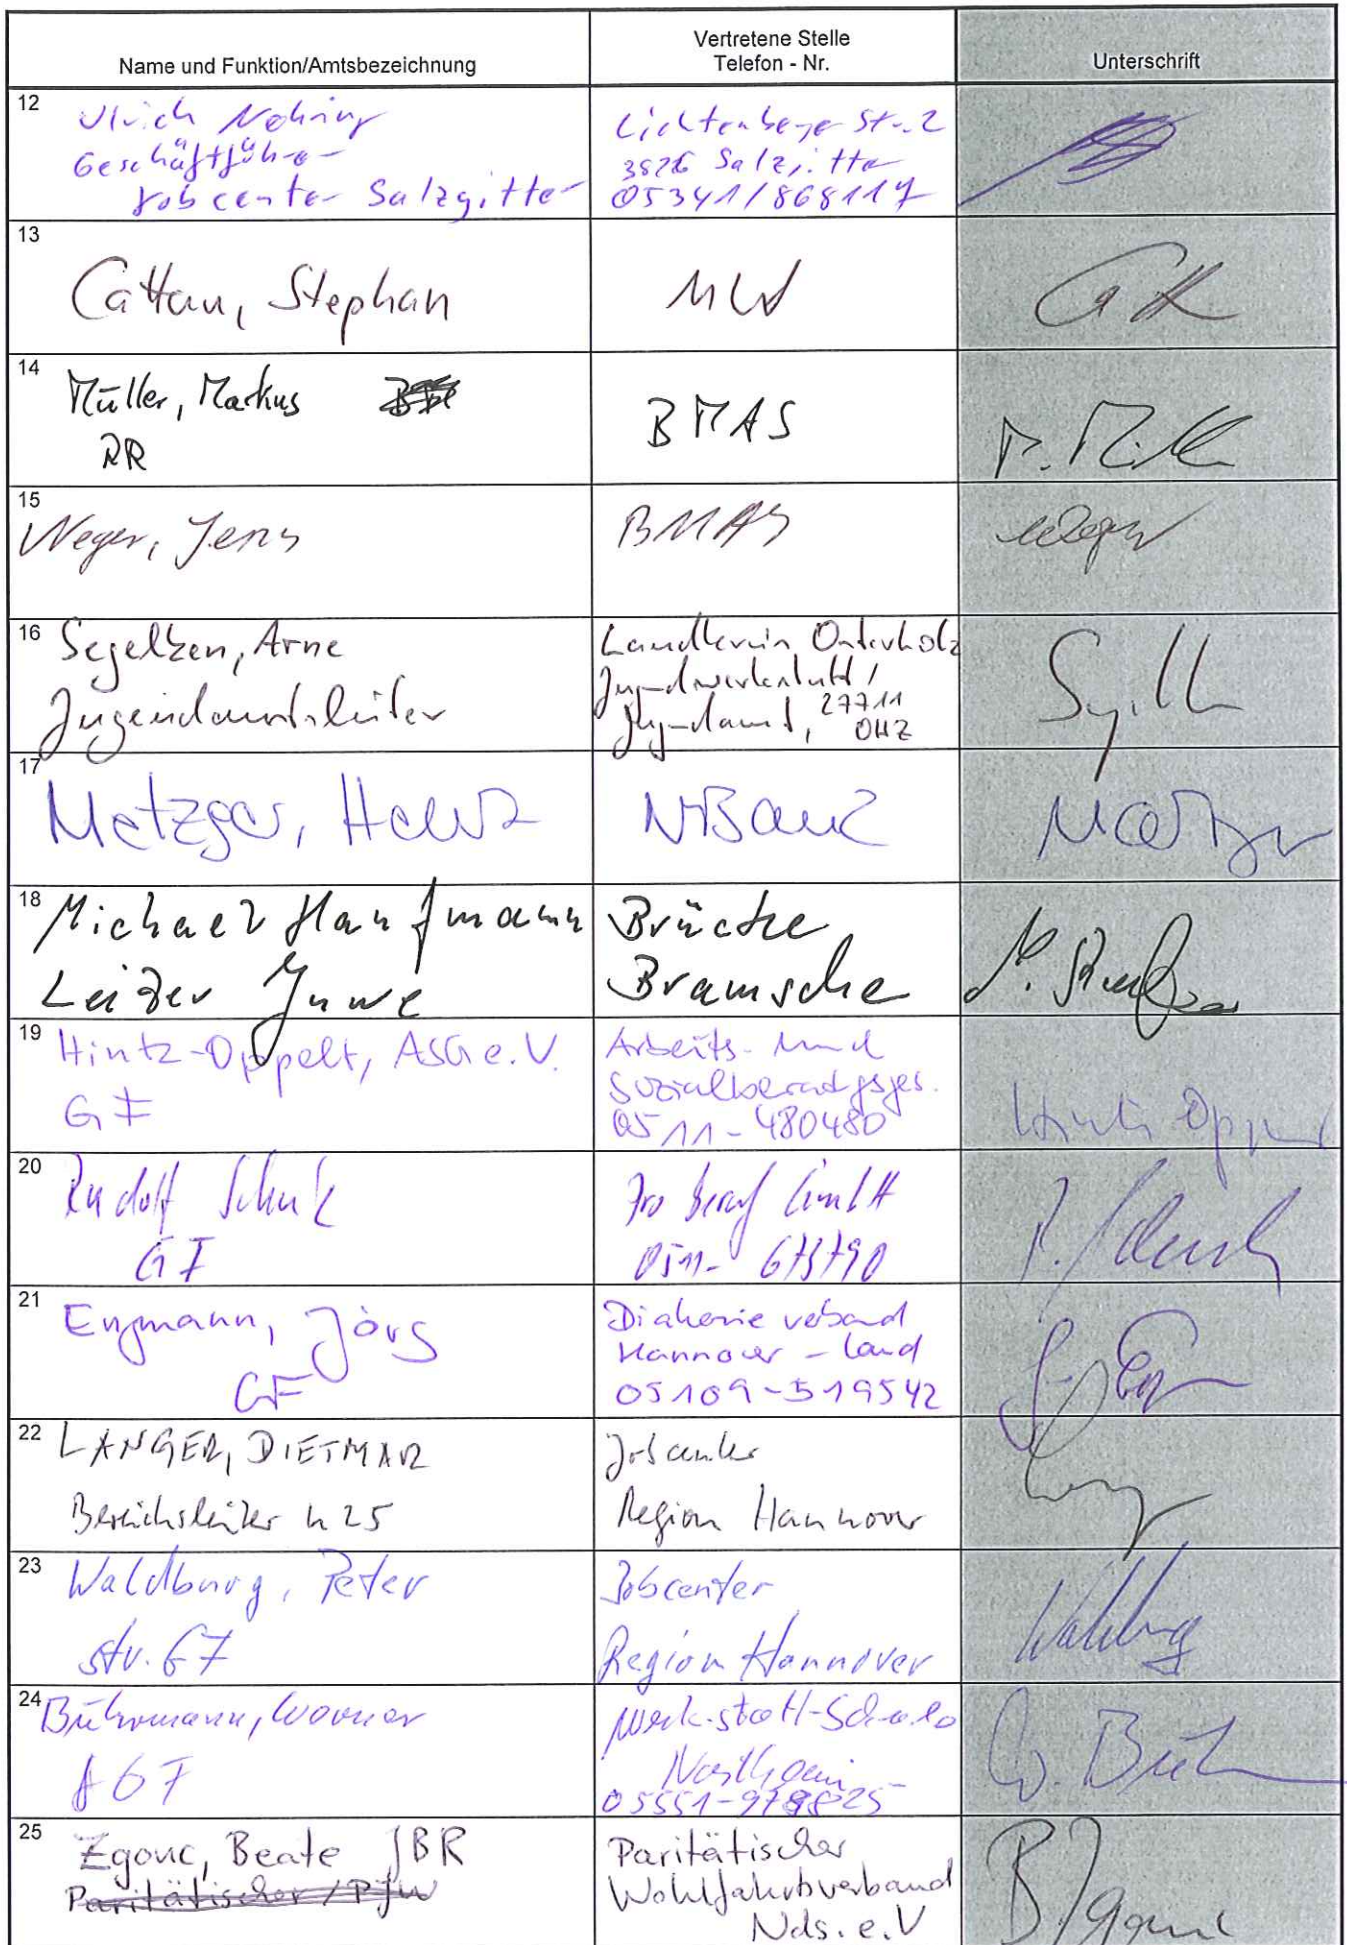 Name und Funktion/Amtsbezeichnung
Vertretene Stelle
Telefon - Nr.
Unterschrift
12
Ulrich Nehring
Geschäftführer
Jobcenter Salzgitter
Lichtenberger Str. 2
Salzgitter
05341/868117
13
Cattau, Stephan
MW
14
Müller, Markus
RR
BMAS
M. Müller
15
Weger, Jens
BMAS
Weger
16
Segelken, Arne
Jugendamtsleiter
Landkreis Osterholz
Jugendwerkstatt /
Jugendamt, 27711
OHZ
17
Metzger, Heinz
NBank
Metzger
18
Michael Haufmann
Leiter Juwe
Brücke
Bramsche
19
Hintz-Oppelt, ASG e.V.
GF
Arbeits- und
Sozialberatgsges.
0511-480480
Hintz Oppelt
20
Rudolf Schulz
GF
Pro Beruf GmbH
0511- 673790
21
Engmann, Jörg
GF
Diakonieverband
Hannover - Land
05109-519542
22
LANGER, DIETMAR
Bereichsleiter
Jobcenter
Region Hannover
23
Waldburg, Peter
stv. GF
Jobcenter
Region Hannover
Waldburg
24
Bührmann, Werner
GF
Werk-statt-Schule
Northeim
25
Zgonc, Beate JBR
Paritätischer / PJW
Paritätischer
Wohlfahrtsverband
Nds. e.V
B. Zgonc